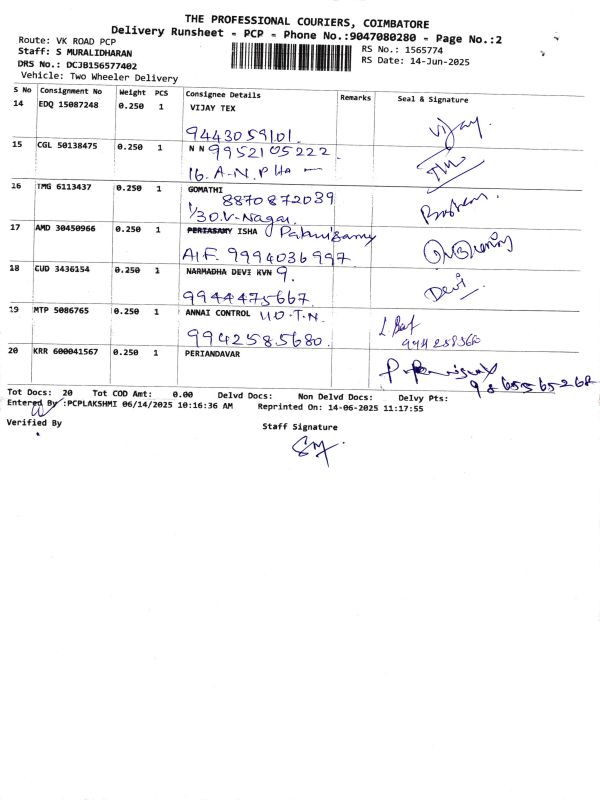 THE PROFESSIONAL COURIERS, COIMBATORE
Delivery Runsheet - PCP - Phone No.:9047080280 - Page No.:2
Route: VK ROAD PCP
Staff: S MURALIDHARAN
DRS No.: DCJB156577402
Vehicle: Two Wheeler Delivery
RS No.: 1565774
RS Date: 14-Jun-2025
S No Consignment No Weight PCS Consignee Details Remarks Seal & Signature
14 EDQ 15087248 0.250 1 VIJAY TEX
9443059101. Vijay.
15 CGL 50138475 0.250 1 N N 9952105222.
16. A.N.P
16 TMG 6113437 0.250 1 GOMATHI
8870872039
1/30.V-Nagar.
17 AMD 30450966 0.250 1 PERIASAMY ISHA
A1F. 9994036997.
18 CUD 3436154 0.250 1 NARMADHA DEVI KVN 9.
9944475667. Devi.
19 MTP 5086765 0.250 1 ANNAI CONTROL 110.T.N.
9942585680.
20 KRR 600041567 0.250 1 PERIANDAVAR
9865565268
Tot Docs: 20 Tot COD Amt: 0.00 Delvd Docs: Non Delvd Docs: Delvy Pts:
Entered By :PCPLAKSHMI 06/14/2025 10:16:36 AM Reprinted On: 14-06-2025 11:17:55
Verified By Staff Signature